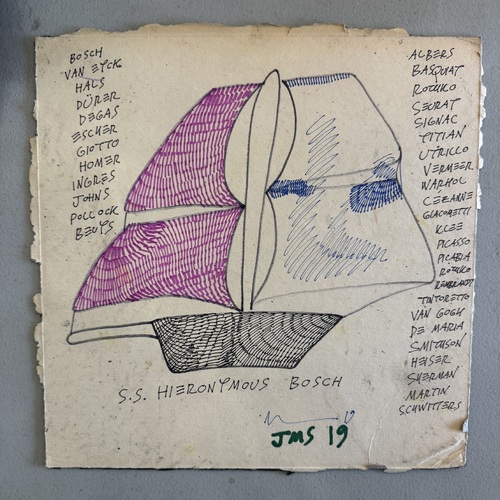 BOSCH
VAN EYCK
HALS
DÜRER
DEGAS
ESCHER
GIOTTO
HOMER
INGRES
JOHNS
POLLOCK
BEUYS
ALBERS
BASQUAT
ROTHKO
SEURAT
SIGNAC
TITIAN
UTRILLO
VERMEER
WARHOL
CEZANNE
GIACOMETTI
KLEE
PICASSO
PICABIA
ROTHKO
REMBRANDT
TINTORETTO
VAN GOGH
DE MARIA
SMITHSON
HEISER
SHERMAN
MARTIN
SCHWITTERS
S.S. HIERONYMOUS BOSCH
19
JMS 19